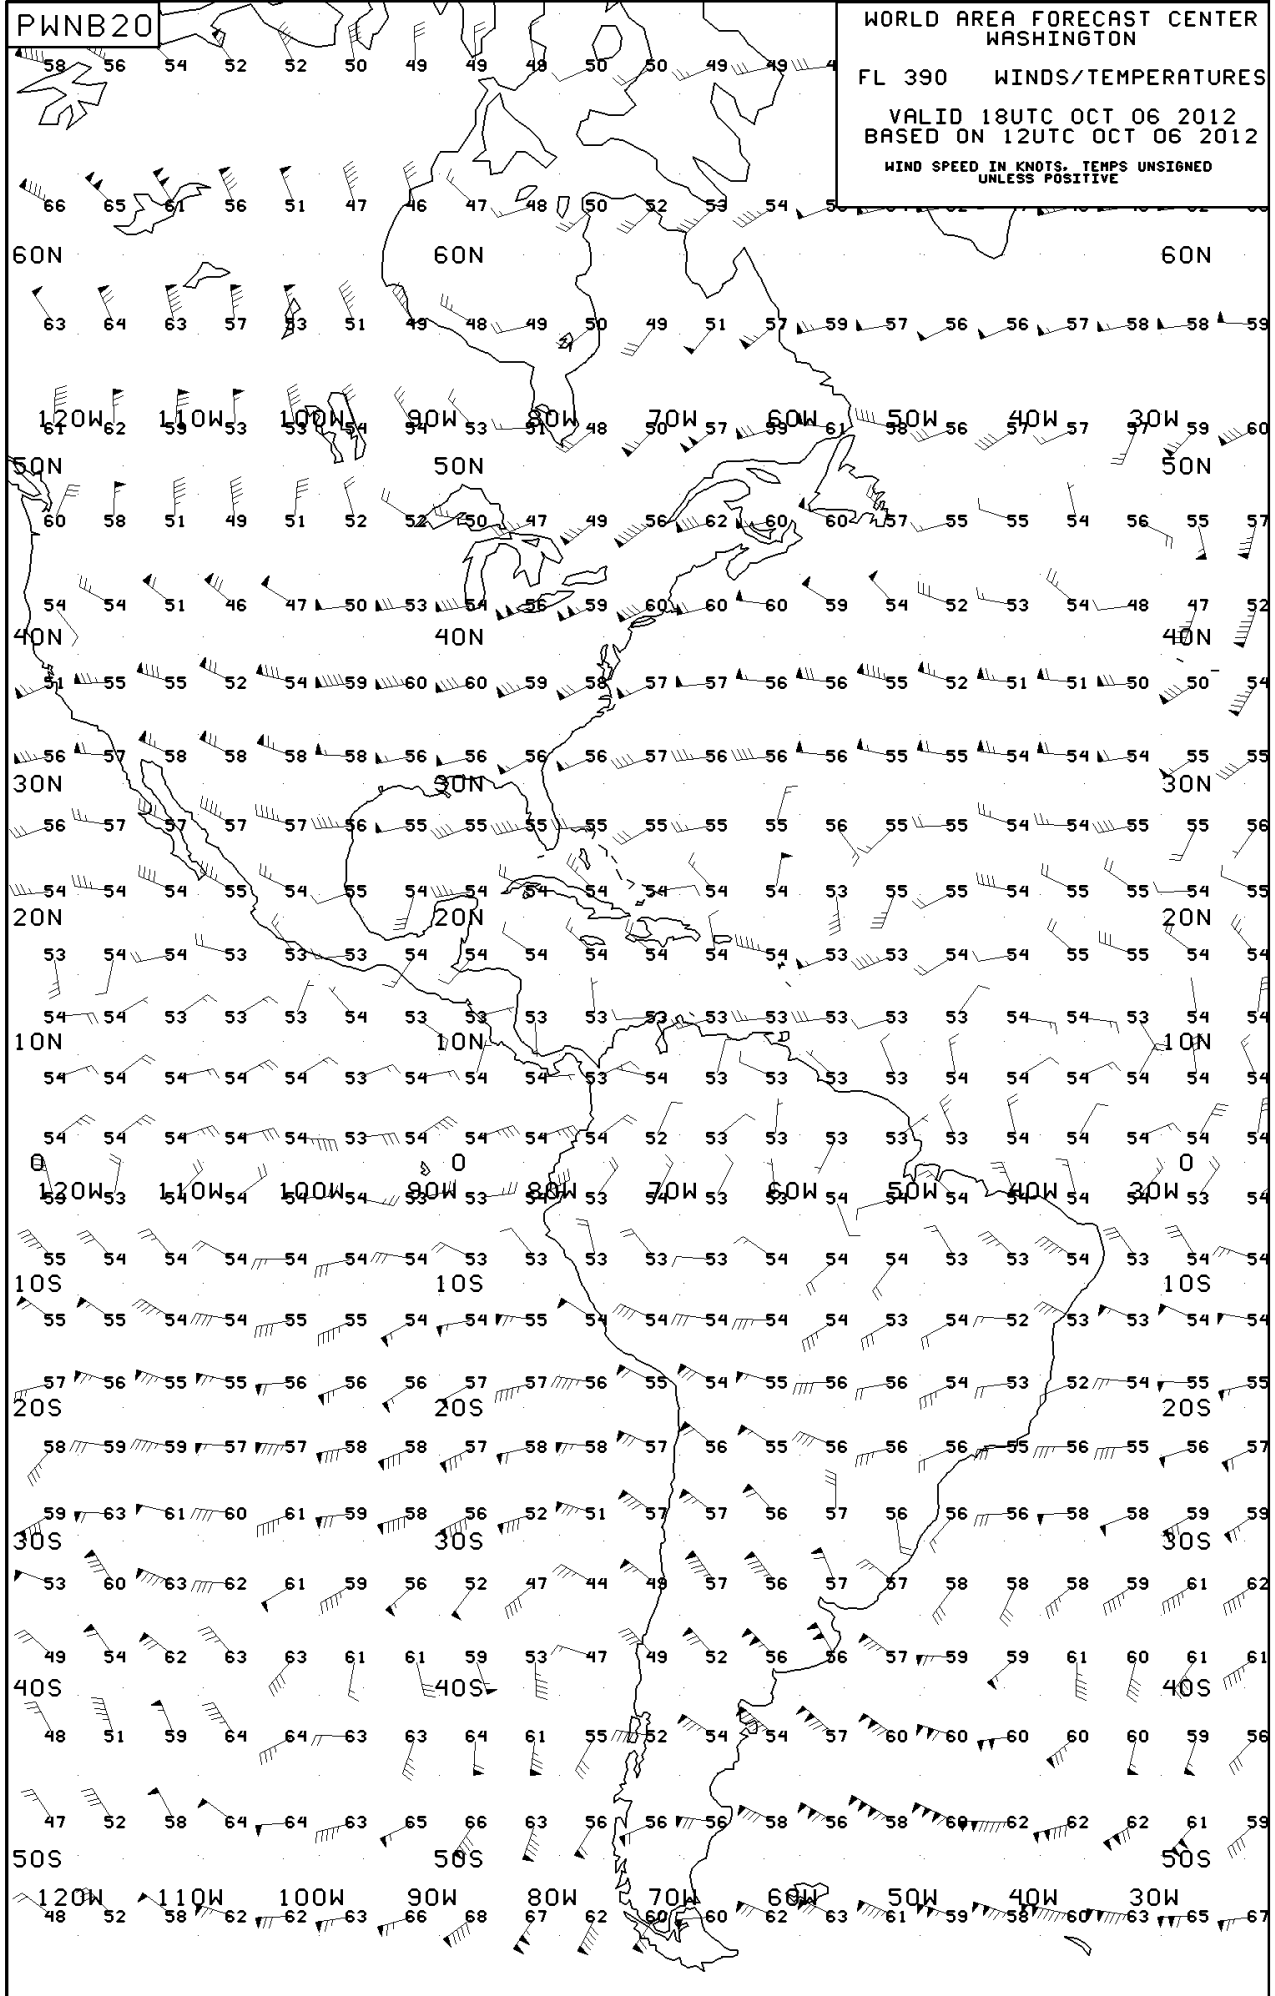 PWNB20
WORLD AREA FORECAST CENTER
WASHINGTON
FL 390 WINDS/TEMPERATURES
VALID 18UTC OCT 06 2012
BASED ON 12UTC OCT 06 2012
WIND SPEED IN KNOTS, TEMPS UNSIGNED
UNLESS POSITIVE
58 56 54 52 52 50 49 49 49 50 50 49 49
66 65 61 56 51 47 46 47 48 50 52 53 54
60N 60N 60N
63 64 63 57 53 51 49 48 49 50 49 51 57 59 57 56 56 57 58 58 59
120W 110W 100W 90W 80W 70W 60W 50W 40W 30W
61 62 59 53 53 54 54 53 51 48 50 57 59 61 58 56 57 57 57 59 60
50N 50N 50N
60 58 51 49 51 52 52 50 47 49 56 62 60 60 57 55 55 54 56 55 57
54 54 51 46 47 50 53 54 56 59 60 60 60 59 54 52 53 54 48 47 52
40N 40N 40N
51 55 55 52 54 59 60 60 59 58 57 57 56 56 55 52 51 51 50 50 54
56 57 58 58 58 58 56 56 56 56 57 56 56 56 55 55 54 54 54 55 55
30N 30N 30N
56 57 57 57 57 56 55 55 55 55 55 55 55 56 55 55 54 54 55 55 56
54 54 54 55 54 55 54 54 54 54 54 54 54 53 55 55 54 55 55 54 55
20N 20N 20N
53 54 54 53 53 53 54 54 54 54 54 54 54 53 53 54 54 55 55 54 54
54 54 53 53 53 54 53 53 53 53 53 53 53 53 53 53 54 54 53 54 54
10N 10N 10N
54 54 54 54 54 53 54 54 54 53 54 53 53 53 53 54 54 54 54 54 54
54 54 54 54 54 53 54 54 54 54 52 53 53 53 53 53 54 54 54 54 54
0 0 0
120W 110W 100W 90W 80W 70W 60W 50W 40W 30W
53 53 54 54 54 54 53 53 54 53 54 53 53 54 54 54 54 54 54 53 54
55 54 54 54 54 54 54 53 53 53 53 53 54 54 54 53 53 54 53 54 54
10S 10S 10S
55 55 54 54 55 55 54 54 55 54 54 54 54 54 53 54 52 53 53 54 54
57 56 55 55 56 56 56 57 57 56 55 54 55 56 56 54 53 52 54 55 55
20S 20S 20S
58 59 59 57 57 58 58 57 58 58 57 56 55 56 56 56 55 56 55 56 57
59 63 61 60 61 59 58 56 52 51 57 57 56 57 56 56 56 58 58 59 59
30S 30S 30S
53 60 63 62 61 59 56 52 47 44 49 57 56 57 57 58 58 58 59 61 62
49 54 62 63 63 61 61 59 53 47 49 52 56 56 57 59 59 61 60 61 61
40S 40S 40S
48 51 59 64 64 63 63 64 61 55 52 54 54 57 60 60 60 60 60 59 56
47 52 58 64 64 63 65 66 63 56 56 56 58 56 58 60 62 62 62 61 59
50S 50S 50S
120W 110W 100W 90W 80W 70W 60W 50W 40W 30W
48 52 58 62 62 63 66 68 67 62 60 60 62 63 61 59 58 60 63 65 67